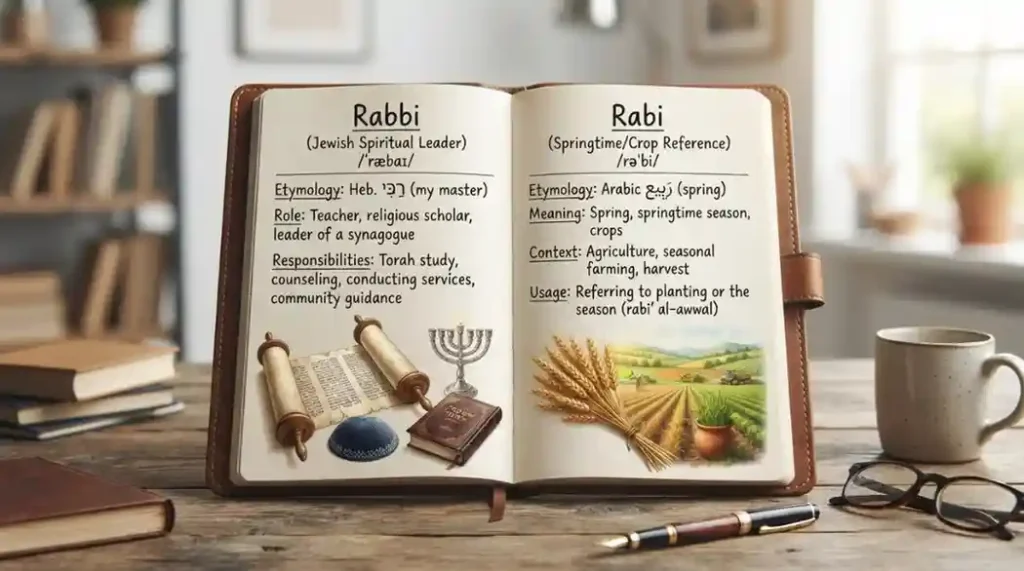 Rabbi
(Jewish Spiritual Leader)
/ˈræbaɪ/
Etymology: Heb. רַכִּי (my master)
Role: Teacher, religious scholar,
leader of a synagogue
Responsibilities: Torah study,
counseling, conducting services,
community guidance
Rabi
(Springtime/Crop Reference)
/rəˈbi/
Etymology: Arabic رَبِيع (spring)
Meaning: Spring, springtime season,
crops
Context: Agriculture, seasonal
farming, harvest
Usage: Referring to planting or the
season (rabi' al-awwal)